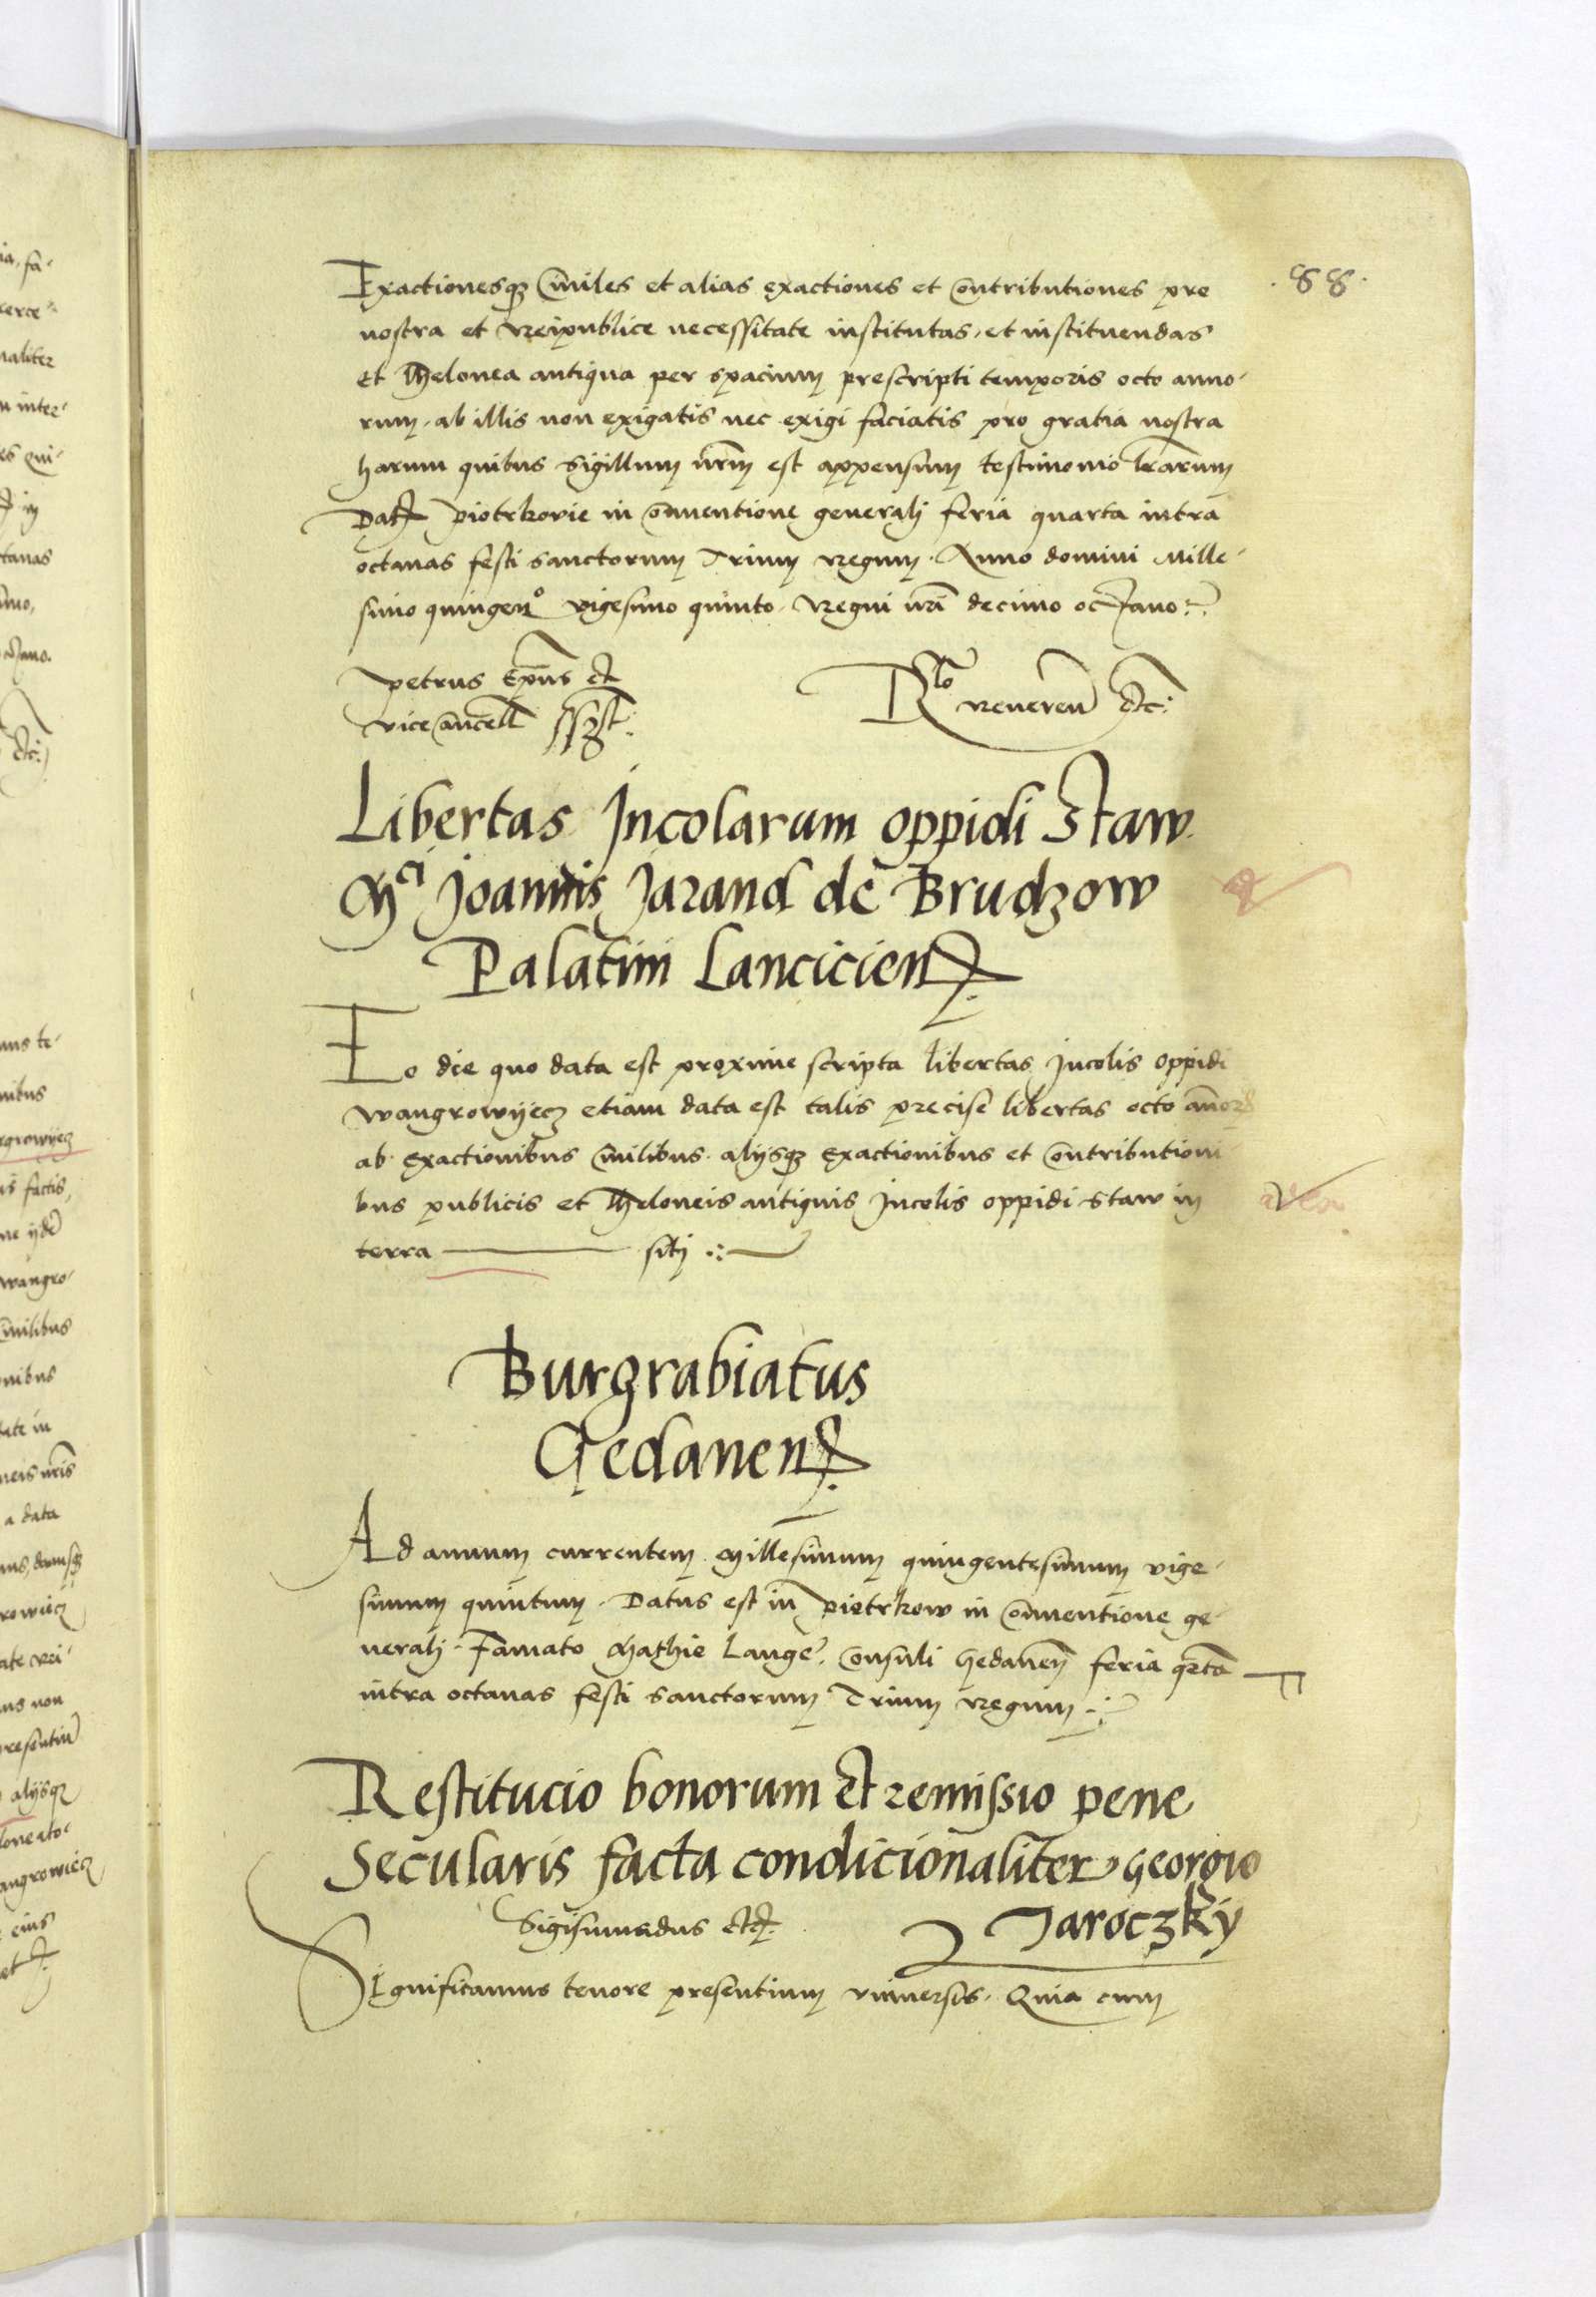 88.
Exactionesq; civiles et alias exactiones et contributiones pre
nostra et Reipublice necessitate institutas, et instituendas
Et Thelonea antiqua per spacium prescripti temporis octo anno-
rum. ab illis non exigatis nec exigi faciatis pro gratia nostra
harum quibus sigillum nrm est appensum testimonio lrarum
Dat piotrkovie in conventione generalj feria quarta intra
octavas festi sanctorum Trium Regum. Anno domini Mille-
simo quingeno vigesimo quinto. Regni nri decimo octavo.
petrus Epus et
vicecancell sszt.
Rlo Reveren etc:
Libertas Incolarum oppidi Staw
Mci Joannis Jarand de Brudzow
Palatini Lancicien.
Eo die quo data est proxime scripta libertas Incolis oppidi
wangrowyecz etiam data est talis precise libertas octo annor
ab exactionibus civilibus. alijsq; Exactionibus et contributioni-
bus publicis et Theloneis antiquis Incolis oppidi Staw in
terra ——— sitj
Burgrabiatus
Gedanen.
Ad annum currentem Millesimum quingentesimum vige-
simum quintum. Datus est in pietrkow in conventione ge-
neralj. Famato Mathie Lange. Consuli Gedanen feria qrta
intra octavas festi sanctorum Trium Regum
Restitucio bonorum Et remissio pene
Secularis facta condicionaliter Georgio
Jaroczky
Sigismundus etc.
Significamus tenore presentium universis. Quia cum